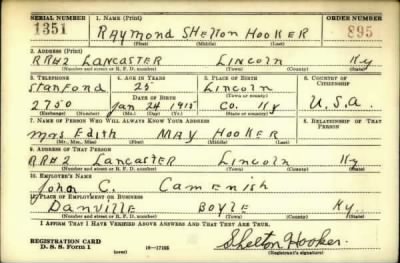 SERIAL NUMBER 1. NAME (Print) ORDER NUMBER
1351 RAYMOND SHELTON HOOKER 895
(First) (Middle) (Last)
2. ADDRESS (Print)
RR#2 LANCASTER LINCOLN Ky
(Number and street or R. F. D. number) (Town) (County) (State)
3. TELEPHONE 4. AGE IN YEARS 5. PLACE OF BIRTH 6. COUNTRY OF CITIZENSHIP
Stanford 25 Lincoln
DATE OF BIRTH (Town or county)
2750 Jan 24 1915 Co. Ky U.S.A.
(Exchange) (Number) (Mo.) (Day) (Yr.) (State or country)
7. NAME OF PERSON WHO WILL ALWAYS KNOW YOUR ADDRESS 8. RELATIONSHIP OF THAT PERSON
Mrs Edith MAY HOOKER
(Mr., Mrs., Miss) (First) (Middle) (Last)
9. ADDRESS OF THAT PERSON
RR#2 Lancaster Lincoln Ky
(Number and street or R. F. D. number) (Town) (County) (State)
10. EMPLOYER'S NAME
John C. Camenish
11. PLACE OF EMPLOYMENT OR BUSINESS
Danville BOYLE Ky.
(Number and street or R. F. D. number) (Town) (County) (State)
I AFFIRM THAT I HAVE VERIFIED ABOVE ANSWERS AND THAT THEY ARE TRUE.
REGISTRATION CARD
D. S. S. Form 1 (over) 16—17105 Shelton Hooker.
(Registrant's signature)